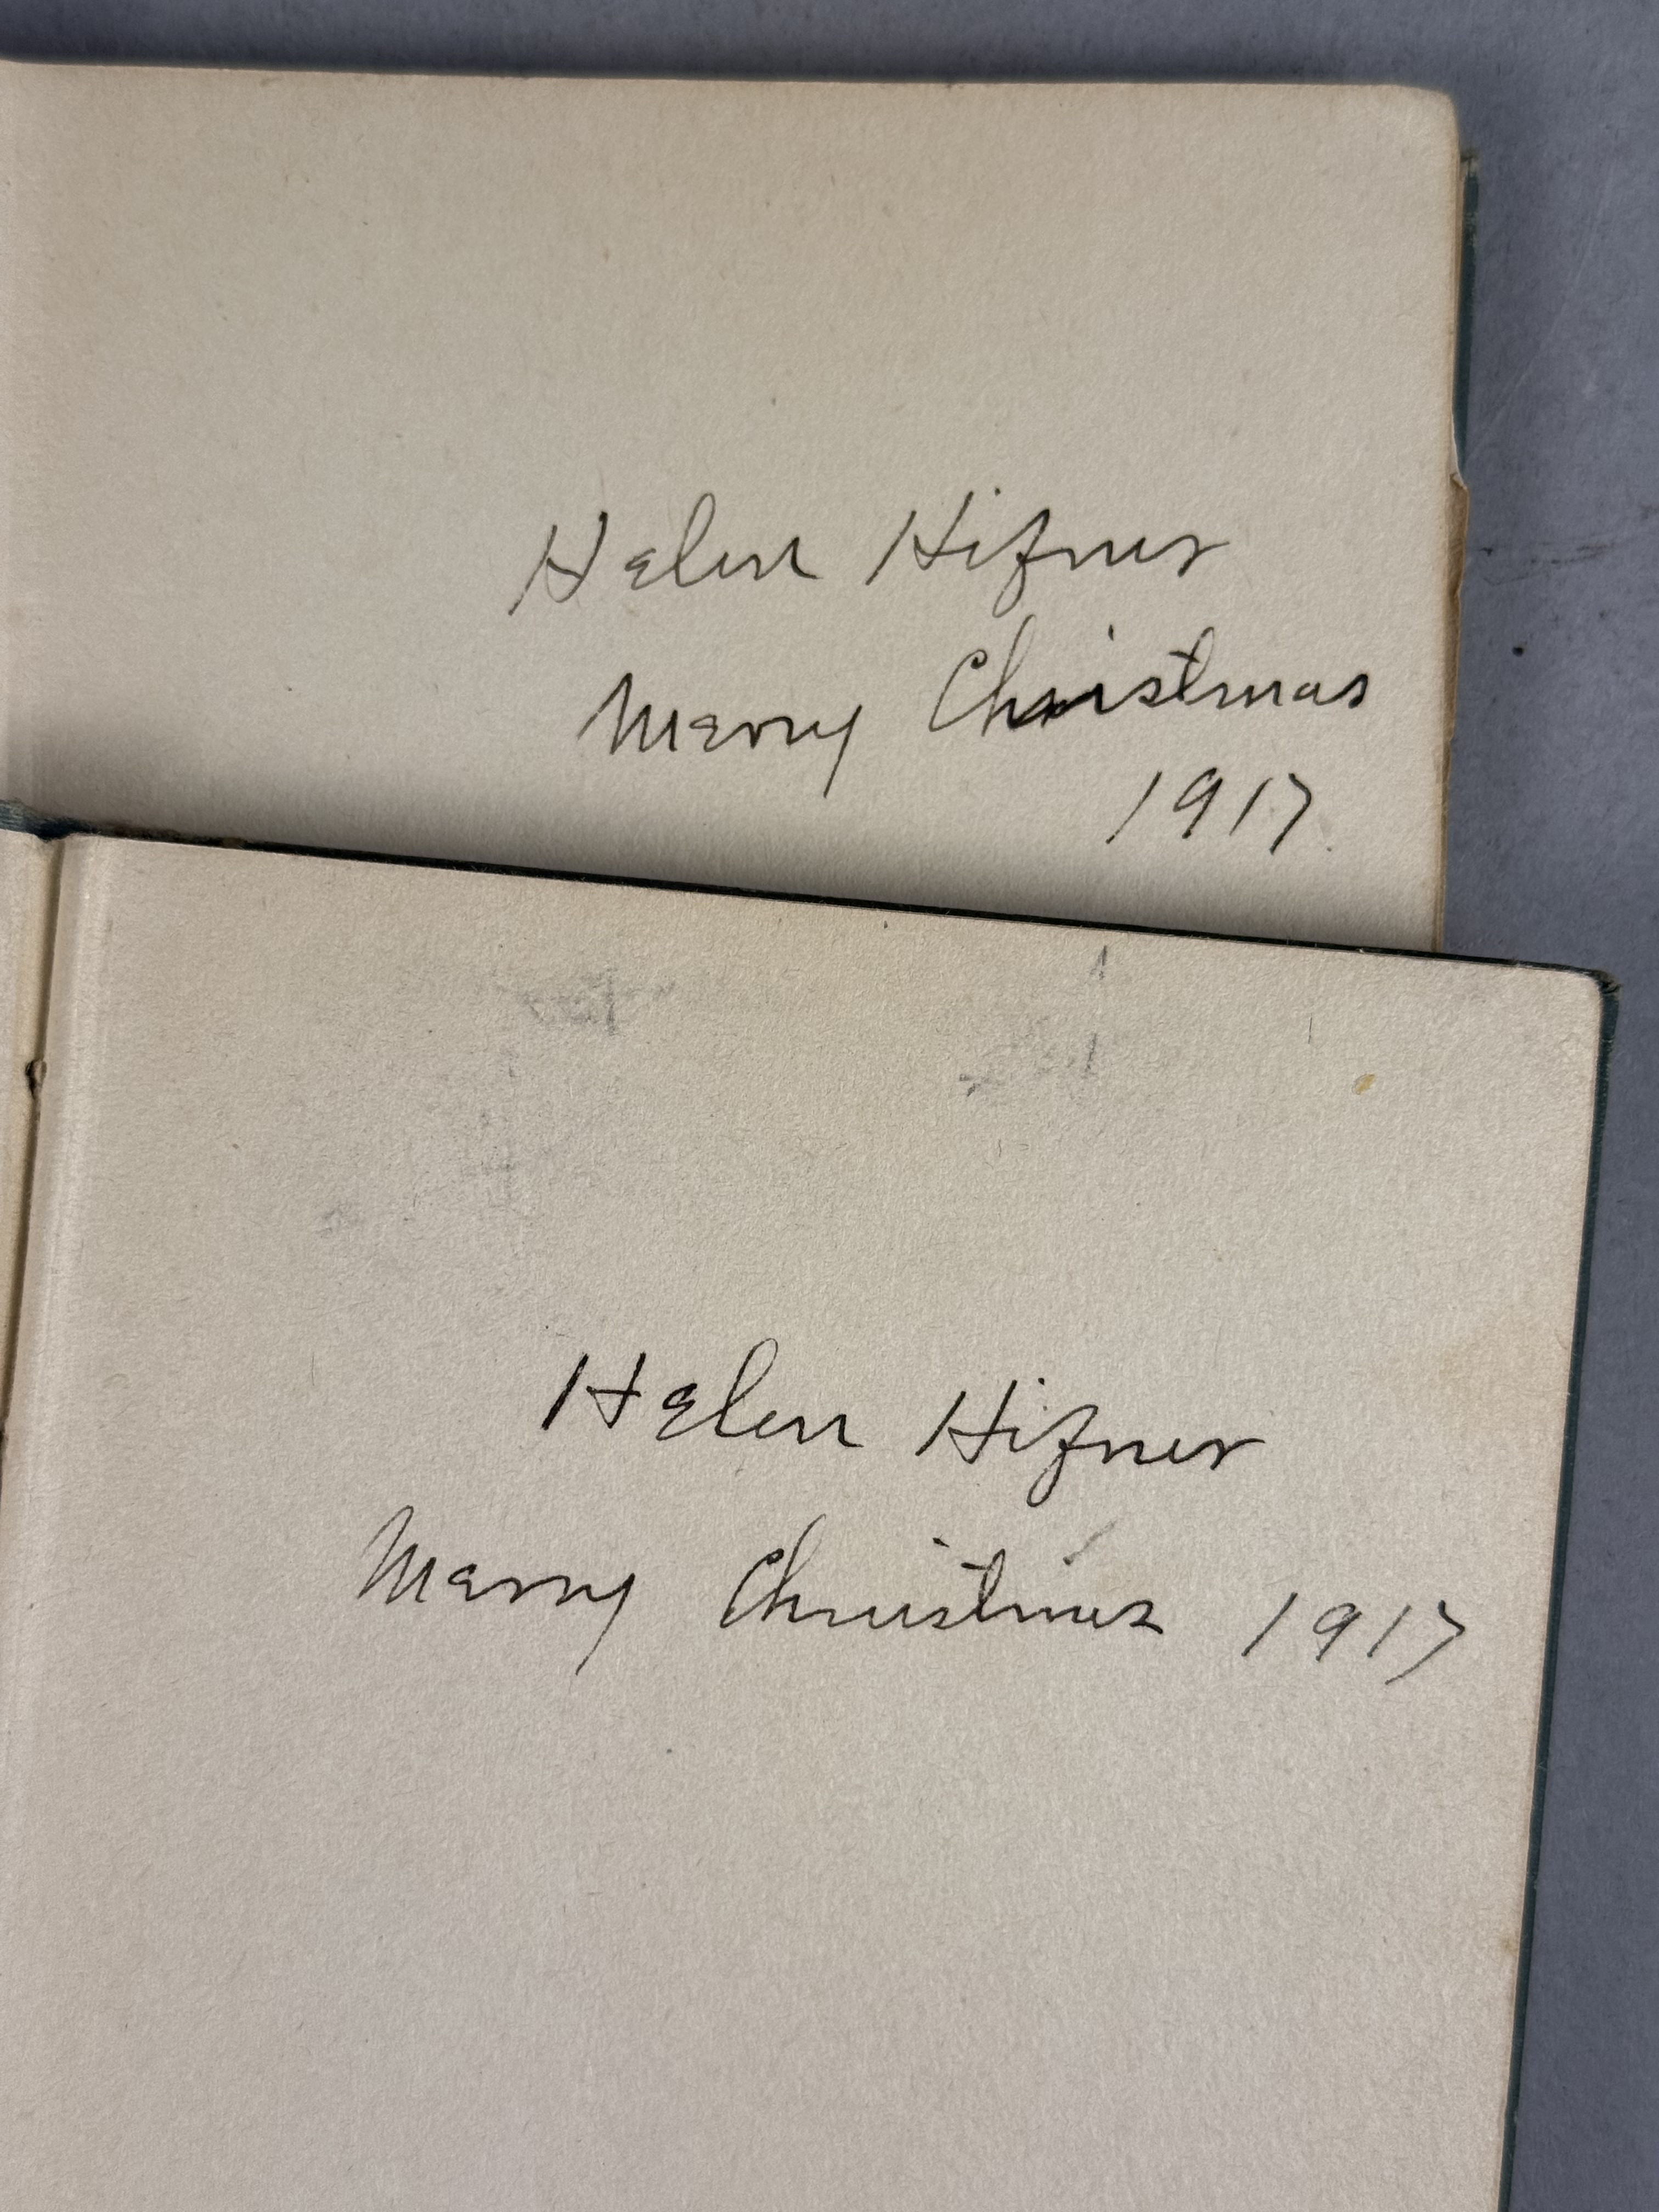 Helen Hifner
Merry Christmas
1917
Helen Hifner
Merry Christmas 1917